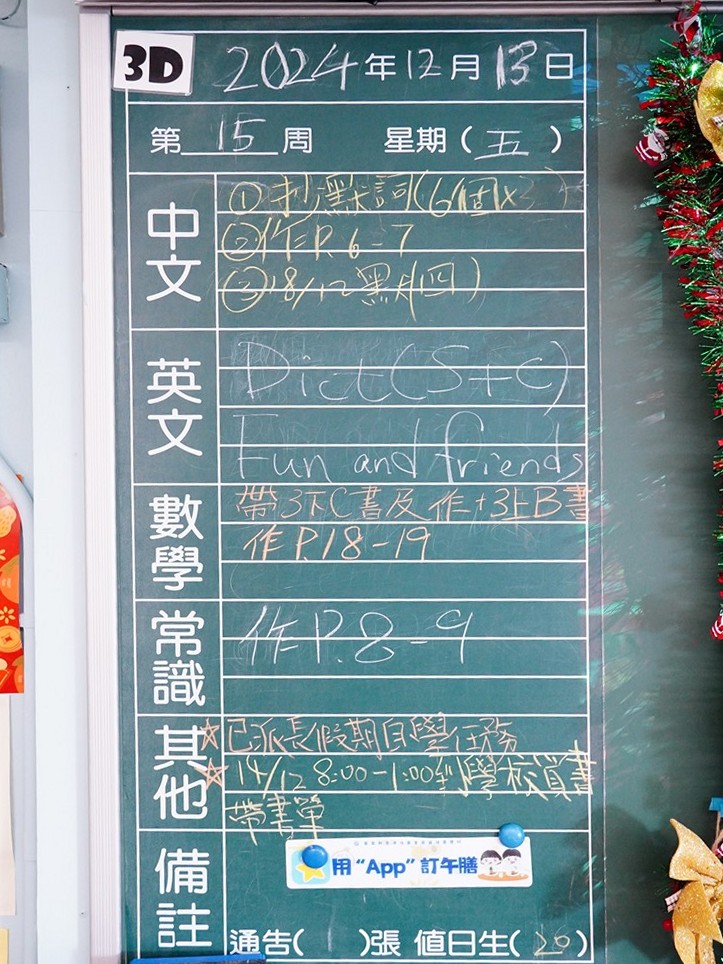 3D 2024年12月13日
第15周 星期(五)
中文
①抄默詞(6個x
②作P.6-7
③18/12默(四)
英文
Dict(S+C)
Fun and friends
數學
帶3下C書及作+3上B書
作P.18-19
常識
作P.8-9
其他
☆已派長假期自學任務
☆14/12 8:00-1:00到學校買書
帶書單
備註
用“App”訂午膳
通告( )張 值日生(20)